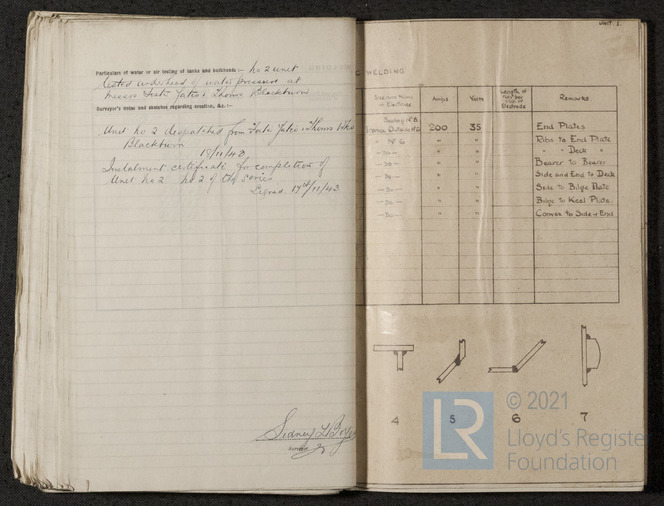 Particulars of water or air testing of tanks and bulkheads:— No 2 unit
tested under head of water pressure at
Messrs Foster Yates & Thoms Blackburn
Surveyor's notes and sketches regarding erection, &c.:—
Unit No 2 despatched from Foster Yates & Thoms
Blackburn
15/11/43
Instalment certificate for completion of
Unit No 2 No 2 of the series
Signed 17th/11/43
Sidney
UNIT 1.
WELDING
Amps
Volts
Length of
Electrode
Remarks
200 35 End Plates
No 6 " " Ribs to End Plate
— Do — " " " Deck "
— Do — " " Bearer to Bearer
— Do — " " Side and End to Deck
— Do — " " Side to Bilge Plate
— Do — " " Bilge to Keel Plate
— Do — " " Convex to Side & End
4 5 6 7
LR
© 2021
Lloyd's Registe
Foundation